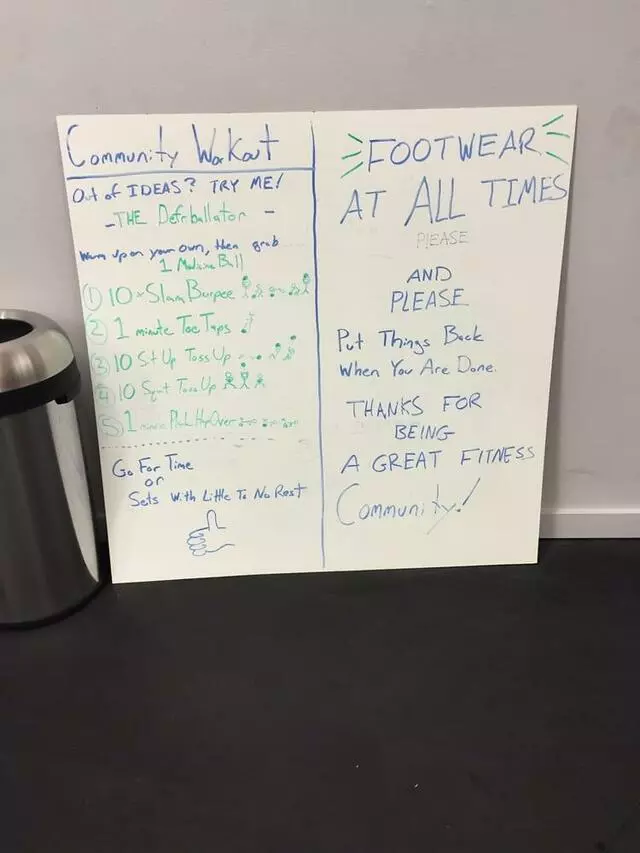 Community Workout
Out of IDEAS? TRY ME!
- THE Defrballator -
Warm up on your own, then grab
1 Medicine Ball
① 10 x Slam Burpee
② 1 minute Toe Taps
③ 10 Sit Up Toss Up
④ 10 Squat Toss Up
⑤ 1 minute Plank Hop Over
Go For Time
or
Sets With Little To No Rest
FOOTWEAR
AT ALL TIMES
PLEASE
AND
PLEASE
Put Things Back
When You Are Done.
THANKS FOR
BEING
A GREAT FITNESS
Community!